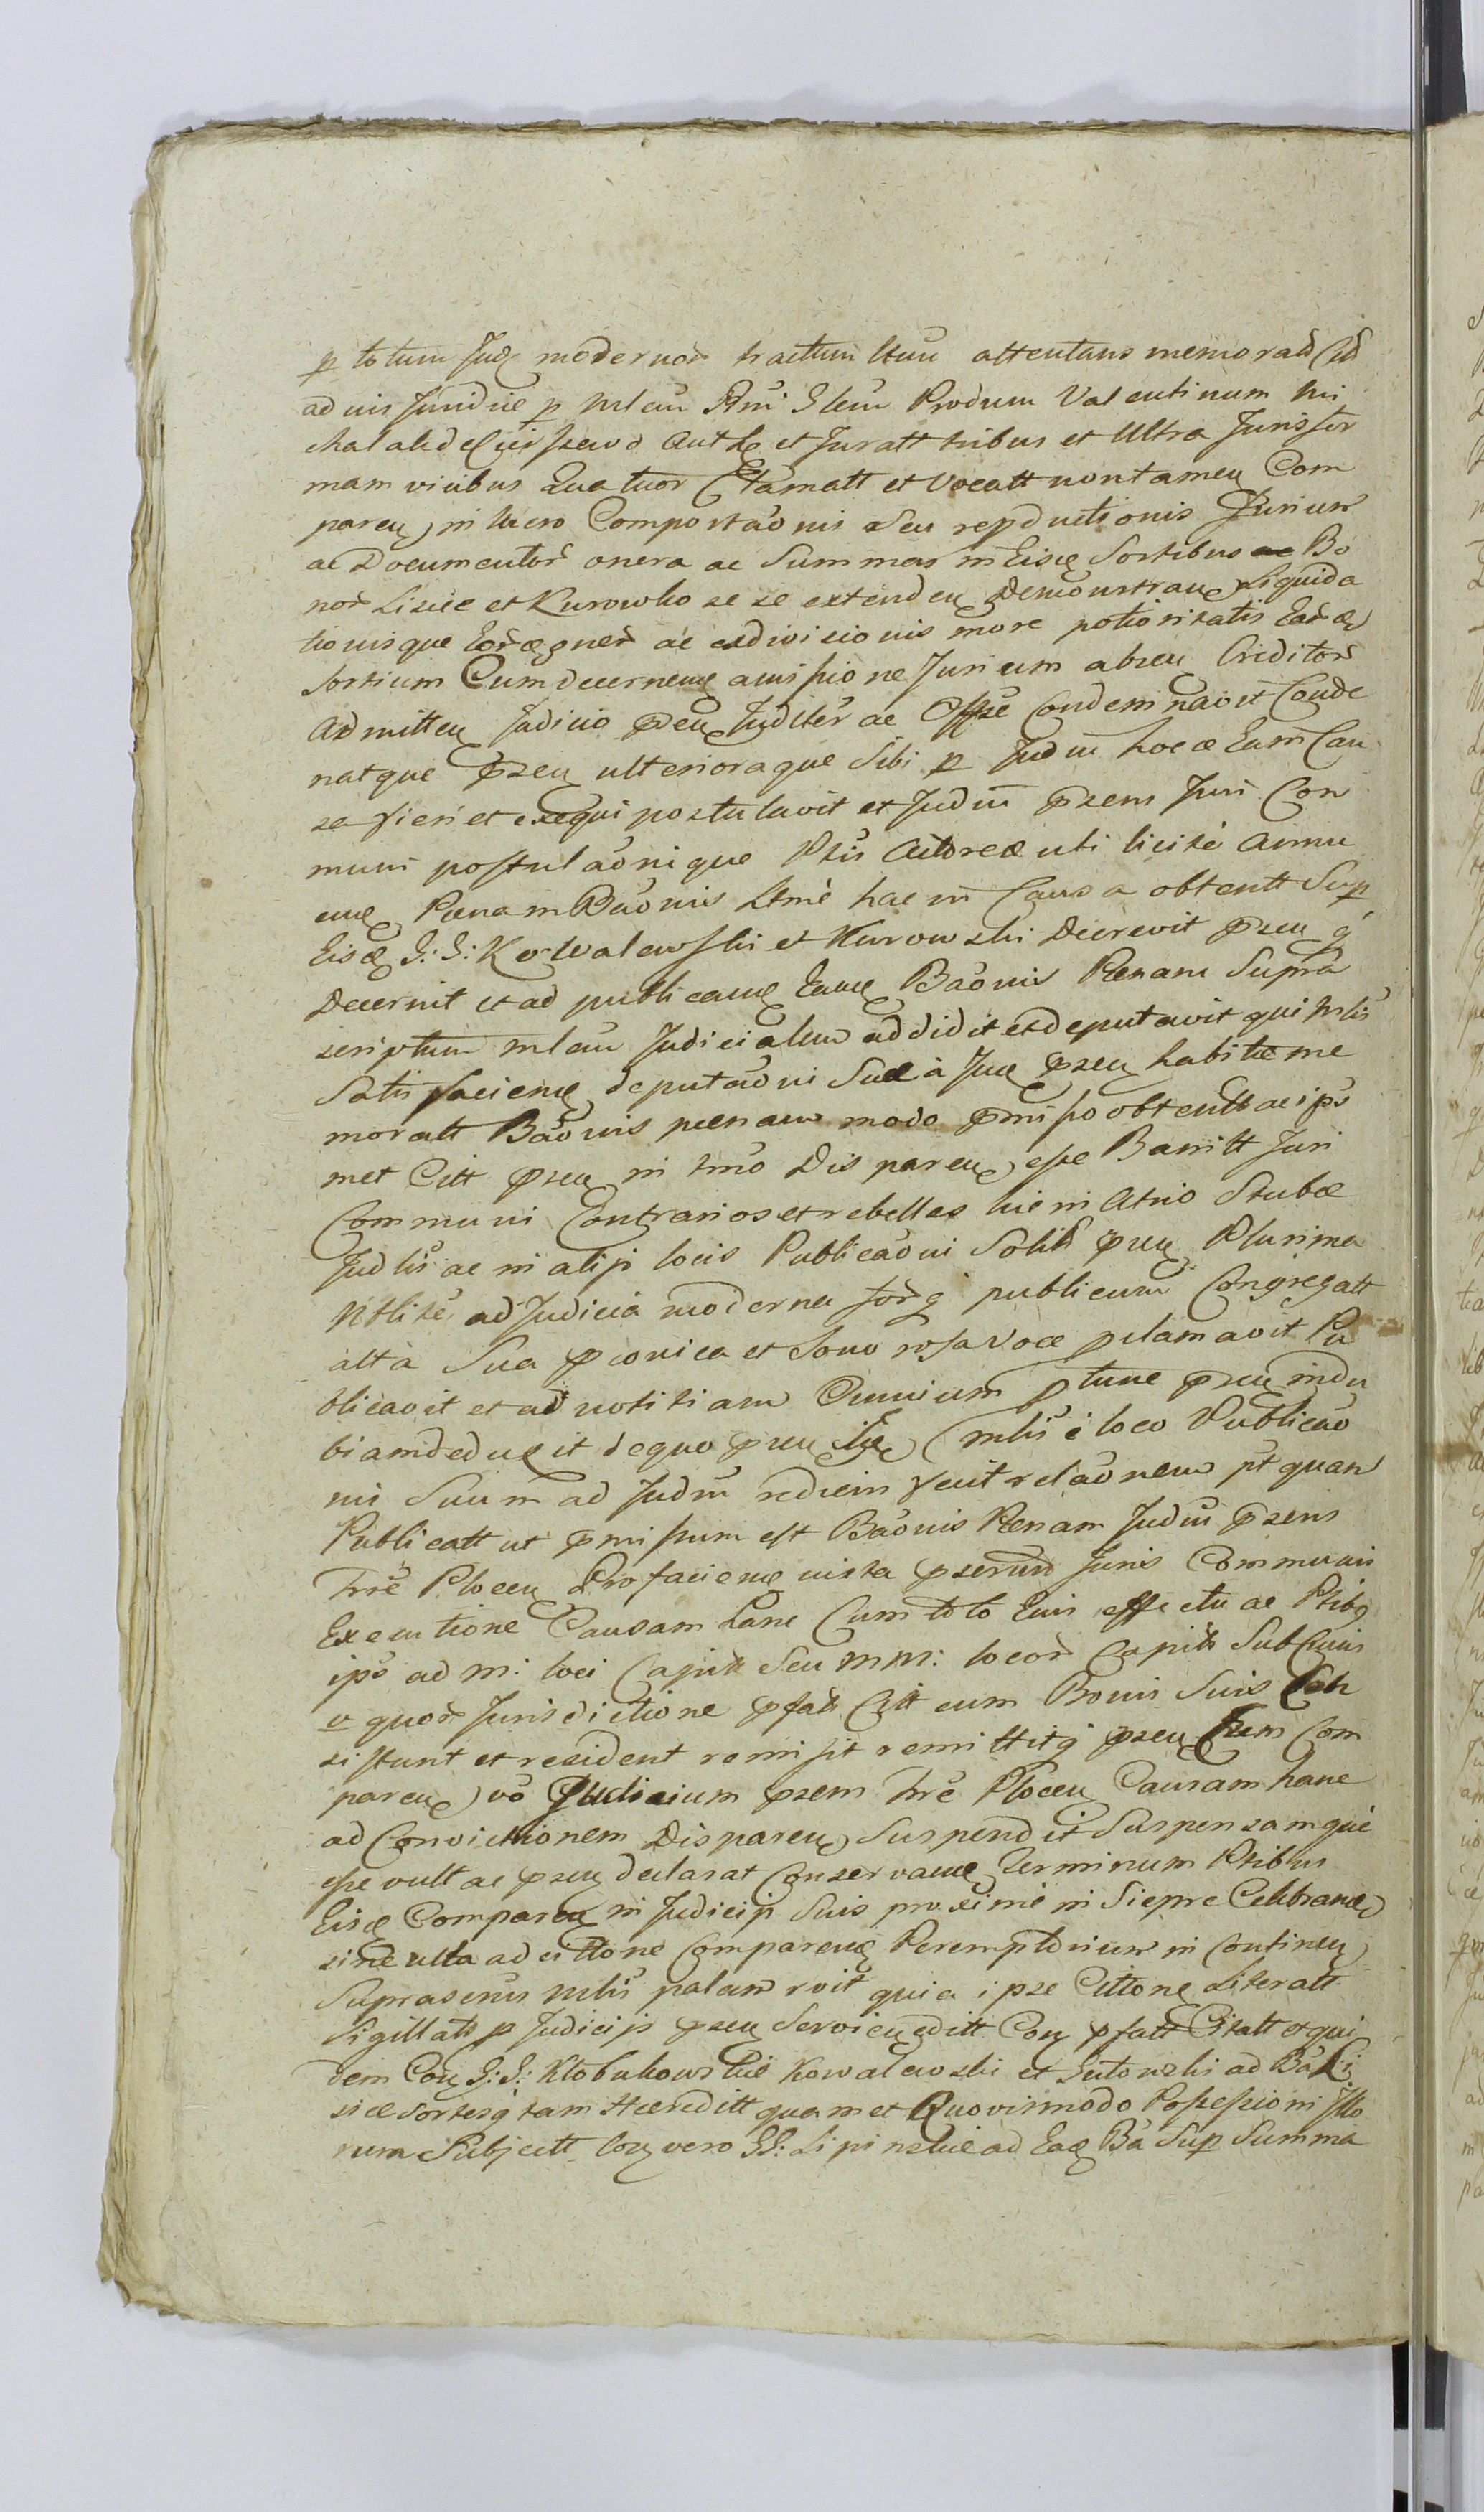 p totum Jud modernor tractum attentans memorad Cit
ad vis Juridice p mlem Rmi Slem Produm Valentinum Mi
chalak de auth et Juratt tribus et Ultra Juris for
mam vicibus Quatuor Clamatt et Vocatt non tamen Com
paren, in vero Comportaōnis Seu reproductionis Jurium
ac Documentor onera ac Summas in Eisd Sortibus Bo
nor Lisice et Kurowko se se extenden Demonstran Liquida
tionisque ac exdivisionis more potioritatis Ear
Sortium Cum decernene amissione Jurium absen Creditor
Admitten Judicio pden Judlter ac Offse Condemnavit Conde
natque pzen ulterioraque Sibi p Judm hoc Eam Cau
sa fieri et exequi postulavit et Judm pzens Juri Con
muni postulaōnique Ptis Actoreæ uti licite annu
ene Pœnam Baōnis Ltme hac in Causa obtentt Sup
Eisd G: G: Kowalewski et Kurowski Decrevit pzen q
Decernit et ad publicane Eane Baōnis Pœnam Supra
scriptum mlem Judicialem addidit et deputavit qui Mlis
Satisfaciene deputaōni Suæ à Jud pzen habitæ me
moratt Baōnis pœnam modo pmisso obtentt ac ips
met Citt pzen in tmo Disparen, esse Bannitt Juri
Communi Contrarios et rebelles hic in Atrio Stubæ
Judlis ac in alijs locis Publicaōni Solitis pzen Plurima
Nblite ad Judicia moderna forq publicum Congregatt
alta Sua pconica et Sonorosa Voce pclamavit Pu
blicavit et ad notitiam Omnium ptunc pzen indu
biam deduxit de quo pzen mlis è loco Publicaō
nis Suum ad Judm rediens fecit relaōnem pt quam
Publicatt ut pmissum est Baōnis Pœnam Judm pzens
Tre Plocen Pro faciene juxta pzcrum Juris Communis
Executione Causam hanc Cum toto Eius effectu ac Ptibq
ips ad m: loci Capit Seu mm: locor Capit Sub Cuius
v quor Jurisdictione pfatt Citt cum Bonis Suis Con
sistunt et resident remisit remittitq pzen Com
paren, vō Judicium pzens Tre Plocen Causam hanc
ad Convictionem Disparen, Suspendit Suspensamque
esse vult ac pzen declarat Conservane Terminum Ptibus
Eisd Comparen in Judicijs Suis proxime in Sieprc Celebrane
sine ulla adcittone Comparene Peremptorium in Continen
Suprascrus mlis palam rvit quia ipse Cittone Literatt
Sigillatt p Judicijs pzen Servien editt Con pfatt Citatt et qui
dem Con G: G: Klobukowskie Kowalewski et Gutowski ad Ba Li
sicæ Sortesq tam Hæreditt quam et Quovismodo Possessioni Illo
rum Subjectt Con vero GG: Lipinskie ad Ead Ba Sup Summa